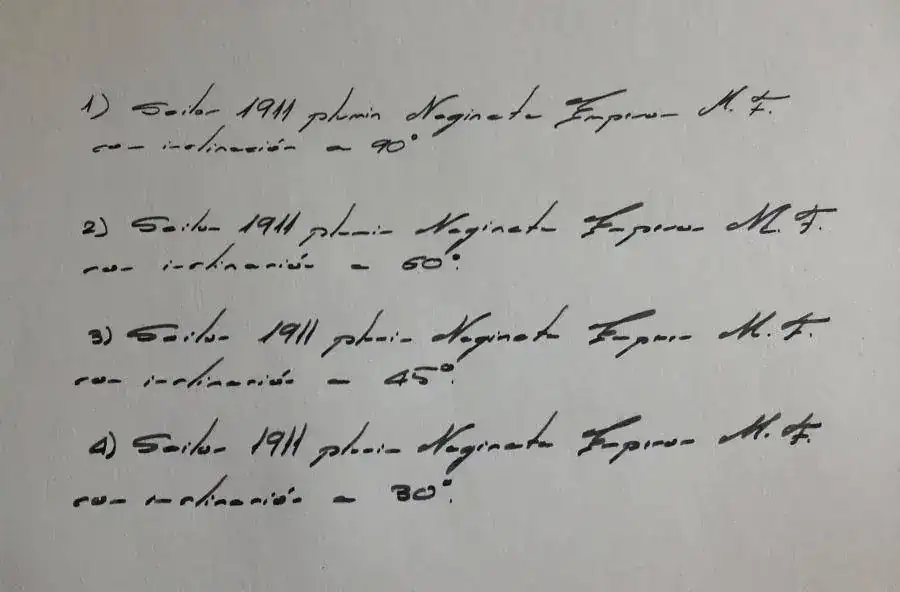 1) Sailor 1911 plumin Naginata Emperor M. F.
con inclinación a 90°
2) Sailor 1911 plumin Naginata Emperor M. F.
con inclinación a 60°.
3) Sailor 1911 plumin Naginata Emperor M. F.
con inclinación a 45°.
4) Sailor 1911 plumin Naginata Emperor M. F.
con inclinación a 30°.